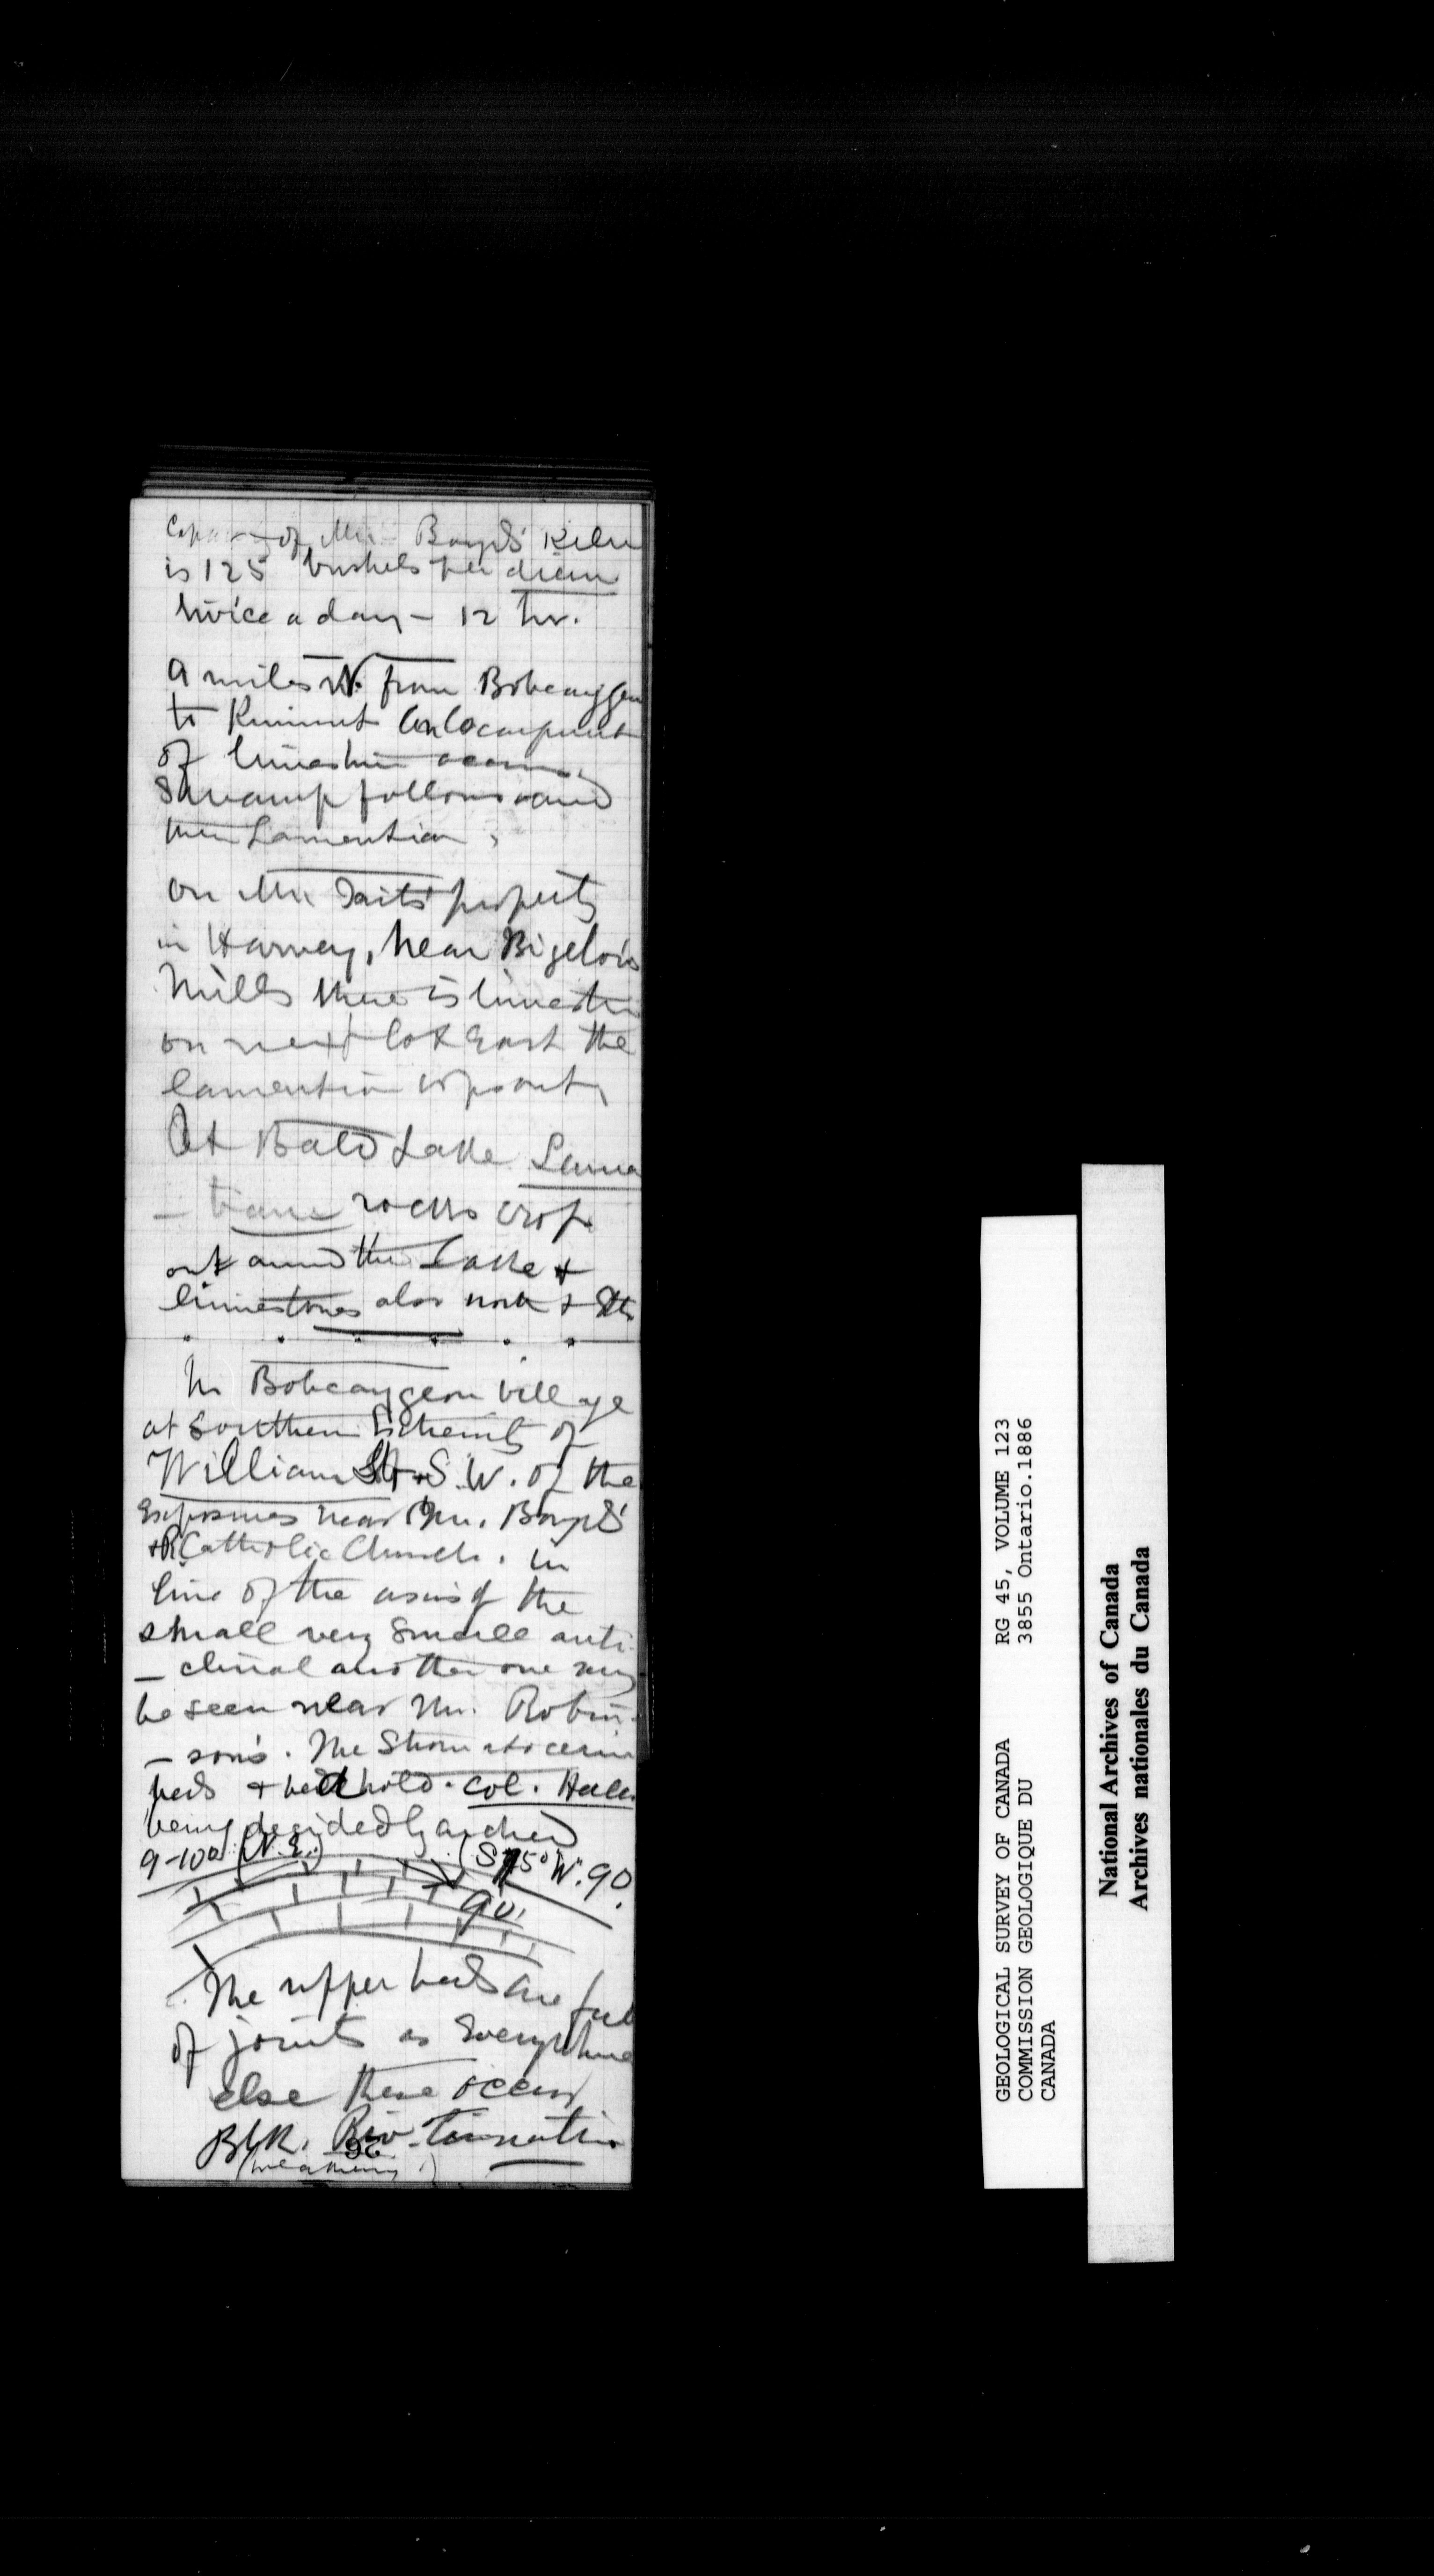 of Mr. Boyd's Kiln
is 125 bushels per diem
twice a day - 12 hr.
9 miles N. from Bobcaygeon
to Kinmount
of limestone
Swamp follows and
then Laurentian
on Mr. Tait's property
in Harvey, near Bigelow's
Mills there is limestone
on next lot East the
laurentian crops out
At Bald Lake Lauren
- tian rocks crop
out around the Lake &
limestones also north &
In Bobcaygeon village
at Southern Extremity of
William St. S.W. of the
Exposures near Mr. Boyd's
& R. Catholic Church. in
line of the axis of the
small very small anti-
- clinal another one may
be seen near Mr. Robin-
- son's. The Stromatocerium
beds & hold. col. Halli
being decidedly arched
9-10° (N.E.) (S 75° W. 90.
90.
The upper beds are full
of joints as Everywhere
else these occur
Blk. Riv.
(weathering.)
36
GEOLOGICAL SURVEY OF CANADA RG 45, VOLUME 123
COMMISSION GEOLOGIQUE DU 3855 Ontario.1886
CANADA
National Archives of Canada
Archives nationales du Canada